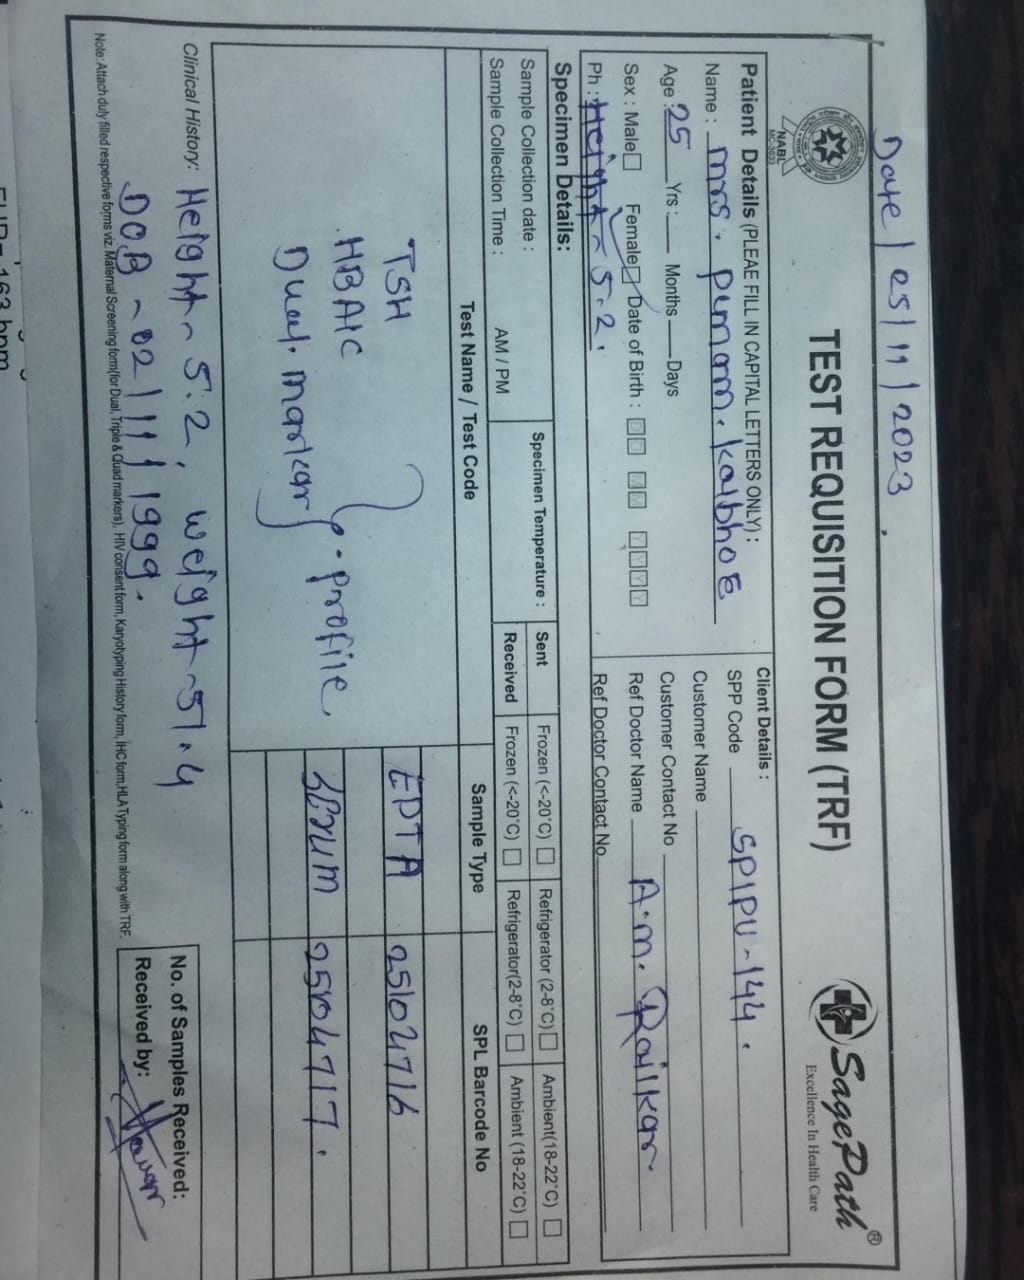 Date / 25/11/2023
NABL
MC-3633
TEST REQUISITION FORM (TRF)
SagePath®
Excellence In Health Care
Patient Details (PLEAE FILL IN CAPITAL LETTERS ONLY) :
Name : Mrs. Punam. Kalbhoe
Age : 25 Yrs : Months Days
Sex : Male Female Date of Birth : DD MM YYYY
Ph : Height ~ 5.2.
Client Details :
SPP Code SPIPU-144.
Customer Name
Customer Contact No
Ref Doctor Name A.M. Railkar
Ref Doctor Contact No
Specimen Details:
Sample Collection date :
Sample Collection Time : AM / PM
Specimen Temperature :
Sent Frozen (<-20°C) Refrigerator (2-8°C) Ambient(18-22°C)
Received Frozen (<-20°C) Refrigerator(2-8°C) Ambient (18-22°C)
Test Name / Test Code Sample Type SPL Barcode No
TSH EDTA 25102716
HBA1C p. profile,
Dual. marker Serum 25104717.
Clinical History: Height ~ 5.2, weight ~ 51.4
DOB ~ 02/11/1999.
No. of Samples Received:
Received by:
Note: Attach duly filled respective forms viz. Maternal Screening form(for Dual, Triple & Quad markers), HIV consent form, Karyotyping History form, IHC form,HLA Typing form along with TRF.
163 bpm